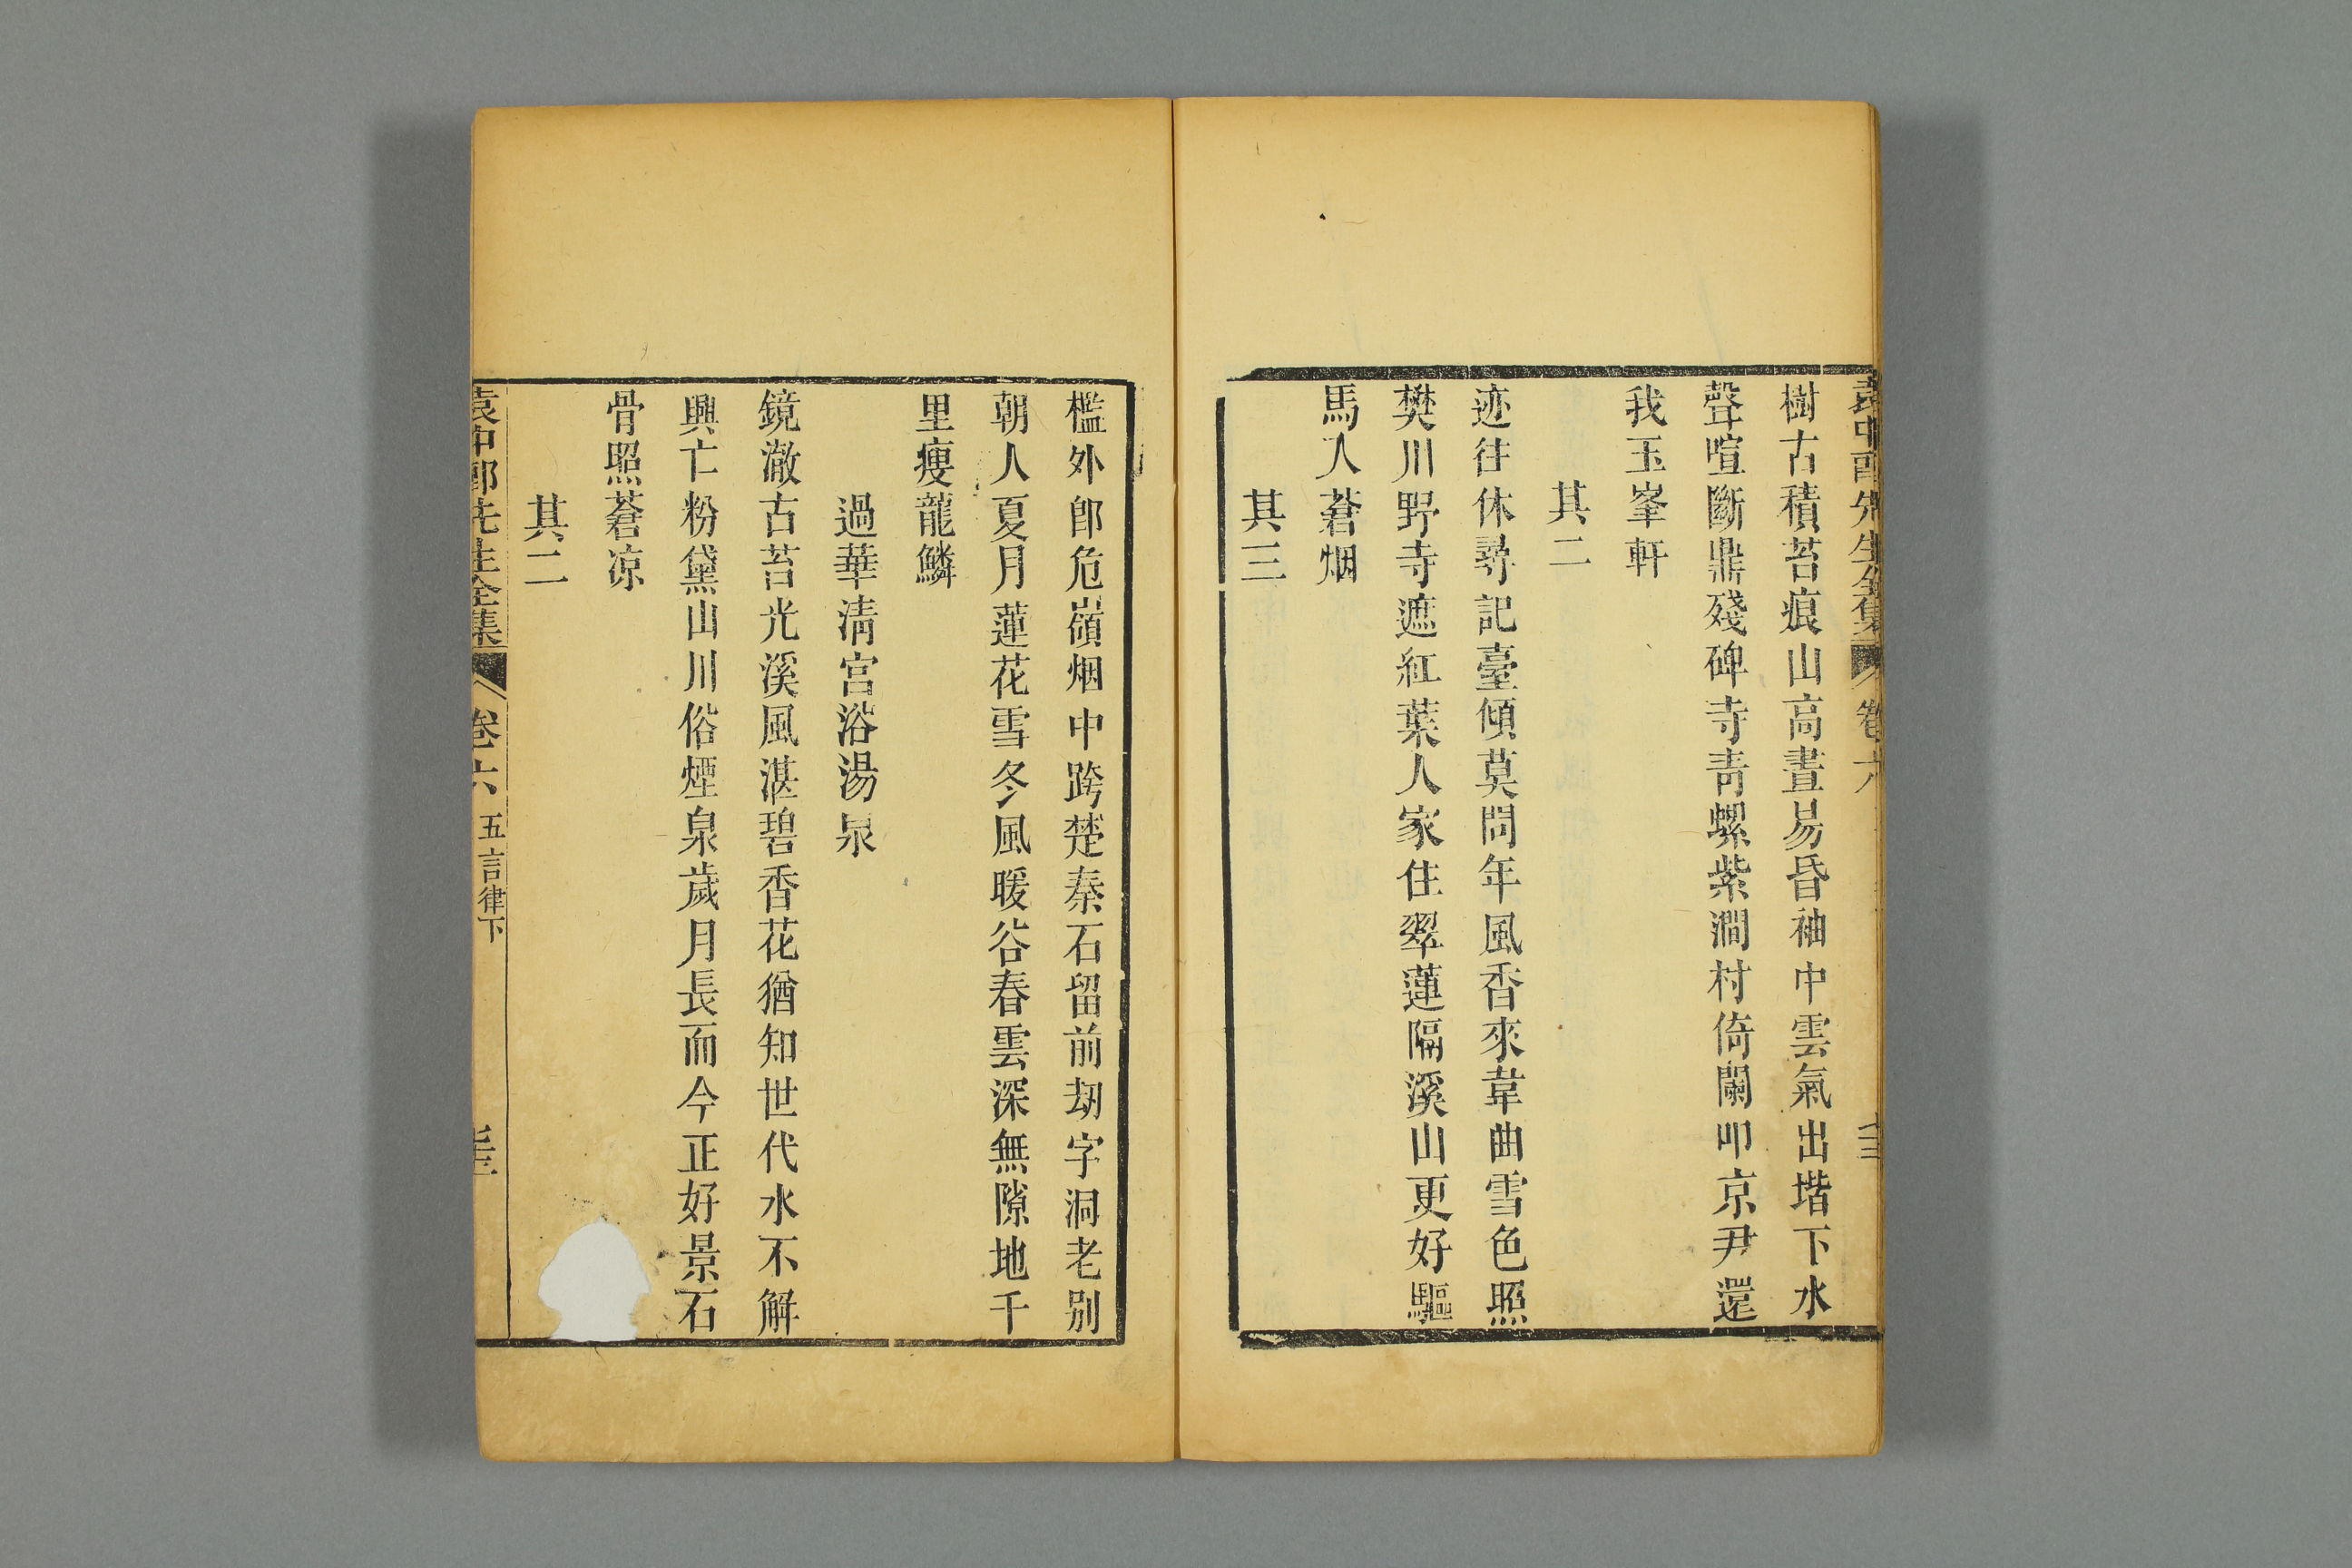 袁中郎先生全集 卷六
樹古積苔痕山高晝易昏袖中雲氣出堦下水
聲喧斷鼎殘碑寺靑螺紫澗村倚闌叩京尹還
我玉峯軒
其二
迹往休尋記臺傾莫問年風香來韋曲雪色照
樊川野寺遮紅葉人家住翠蓮隔溪山更好驅
馬入蒼烟
其三
檻外卽危嶺烟中跨楚秦石留前刧字洞老別
朝人夏月蓮花雪冬風暖谷春雲深無隙地千
里瘦龍鱗
過華淸宮浴湯泉
鏡澈古苔光溪風湛碧香花猶知世代水不解
興亡粉黛山川俗煙泉歲月長而今正好景石
骨照蒼凉
其二
袁中郎先生全集 卷六 五言律下